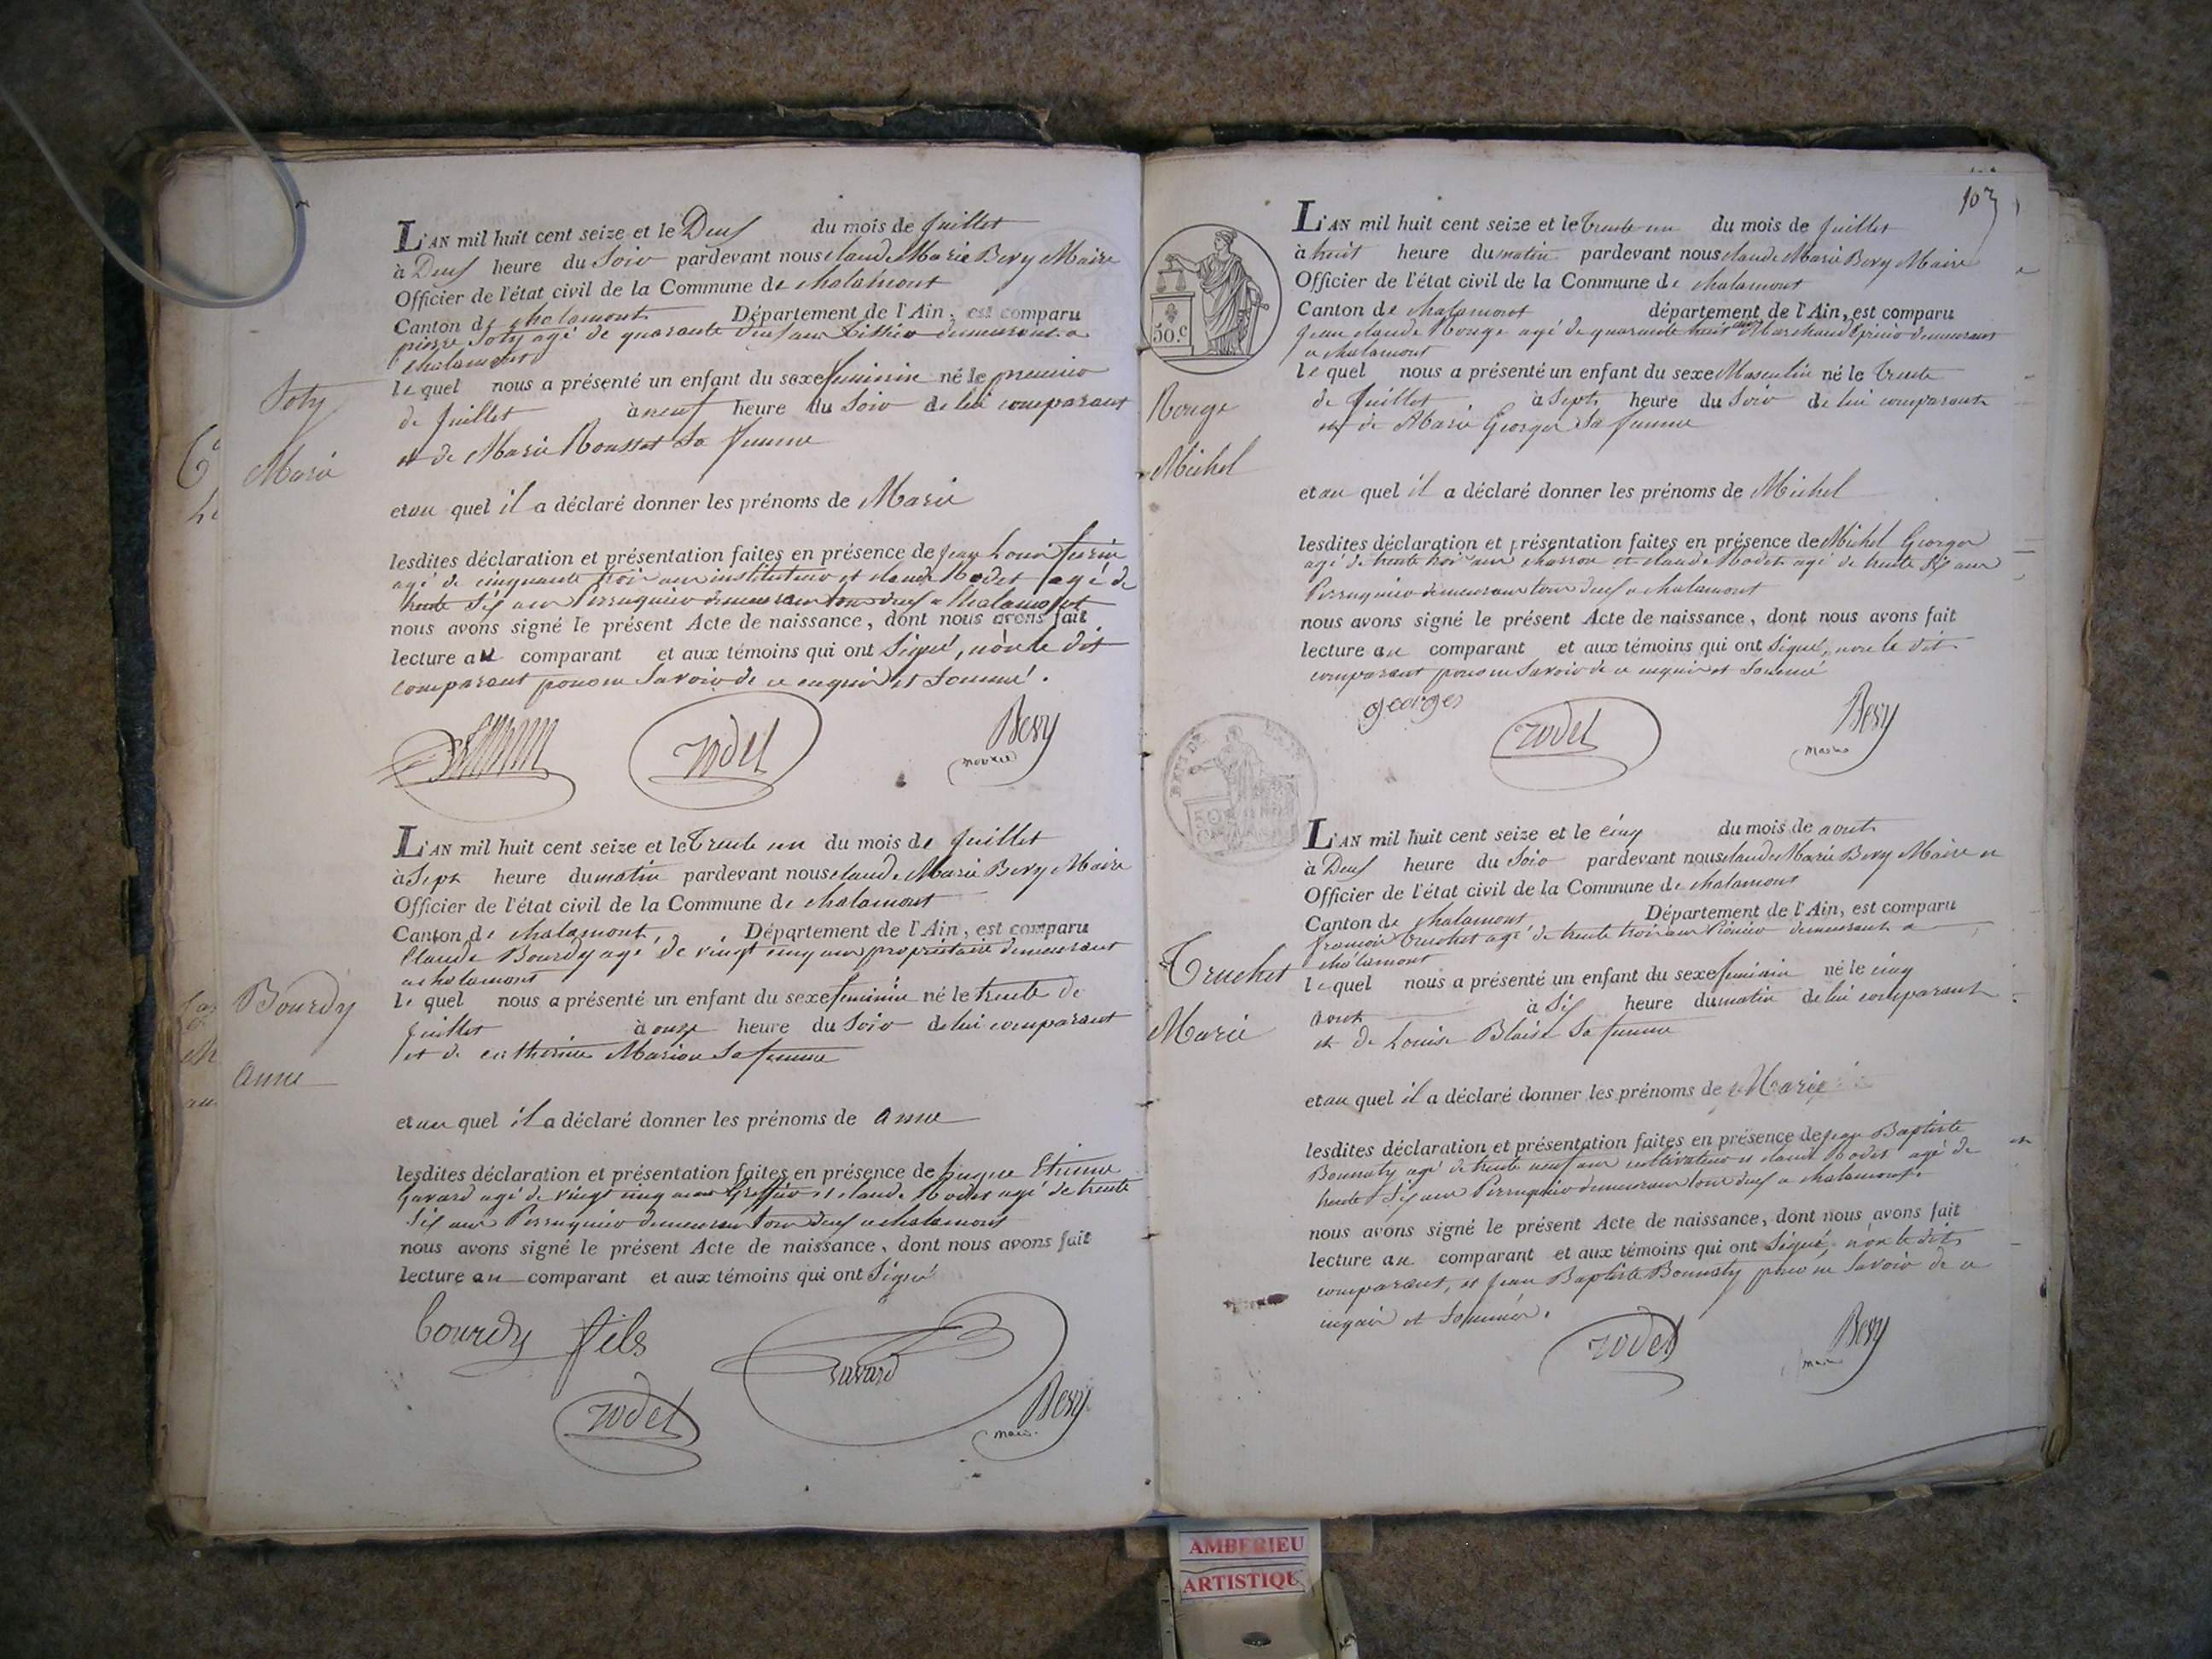 L'AN mil huit cent seize et le Deux du mois de Juillet
à Deux heure du Soir pardevant nous claude Marie Bery Maire
Officier de l'état civil de la Commune de chalamont
Canton de chalamont Département de l'Ain, est comparu
pierre Soty agé de quarante Deux ans demeurant a
chalamont
Soty
le quel nous a présenté un enfant du sexe feminin né le premier
de Juillet à neuf heure du Soir de lui comparant
Marie
et de Marie Rousset Sa femme
et au quel il a déclaré donner les prénoms de Marie
lesdites déclaration et présentation faites en présence de Jean Louis
agé de cinquante trois ans instituteur et claude Rodet agé de
trente Six ans Perruquier demeurant tous deux a chalamont
nous avons signé le présent Acte de naissance, dont nous avons fait
lecture au comparant et aux témoins qui ont Signé, non le dit
comparant pour ne Savoir de ce enquis et Sommé.
rodet
Bery
L'AN mil huit cent seize et le Trente un du mois de Juillet
à Sept heure du matin pardevant nous claude Marie Bery Maire
Officier de l'état civil de la Commune de chalamont
Canton de chalamont, Département de l'Ain, est comparu
Claude Bourdy agé de vingt cinq ans propriétaire demeurant
a chalamont
Bourdy
le quel nous a présenté un enfant du sexe feminin né le trente de
Juillet à onze heure du Soir de lui comparant
et de catherine Marion Sa femme
anne
et au quel il a déclaré donner les prénoms de anne
lesdites déclaration et présentation faites en présence de hugue Etienne
Gavard agé de vingt cinq ans Greffier et claude Rodet agé de trente
Six ans Perruquier demeurant tous deux a chalamont
nous avons signé le présent Acte de naissance, dont nous avons fait
lecture au comparant et aux témoins qui ont Signé
bourdy fils
Gavard
rodet
Bery
maire
103
50.c
L'AN mil huit cent seize et le Trente un du mois de Juillet
à huit heure du matin pardevant nous claude Marie Bery Maire
Officier de l'état civil de la Commune de chalamont
Canton de chalamont département de l'Ain, est comparu
Jean claude Rouge agé de quarante huit ans Marchand Epicier demeurant
a chalamont
le quel nous a présenté un enfant du sexe Masculin né le Trente
Rouge
de Juillet à Sept heure du Soir de lui comparant
et de Marie Georges Sa femme
Michel
et au quel il a déclaré donner les prénoms de Michel
lesdites déclaration et présentation faites en présence de Michel Georges
agé de trente trois ans charron et claude Rodet agé de trente Six ans
Perruquier demeurant tous deux a chalamont
nous avons signé le présent Acte de naissance, dont nous avons fait
lecture au comparant et aux témoins qui ont Signé, non le dit
comparant pour ne Savoir de ce enquis et Sommé
georges
rodet
Bery
maire
L'AN mil huit cent seize et le cinq du mois de aout
à Deux heure du Soir pardevant nous claude Marie Bery Maire et
Officier de l'état civil de la Commune de chalamont
Canton de chalamont Département de l'Ain, est comparu
francois Truchet agé de trente trois ans demeurant a
chalamont
Truchet
le quel nous a présenté un enfant du sexe feminin né le cinq
aout à Six heure du matin de lui comparant
Marie
et de Louise Blaise Sa femme
et au quel il a déclaré donner les prénoms de Marie
lesdites déclaration et présentation faites en présence de Jean Baptiste
Bonnaty agé de trente neuf ans cultivateur et claude Rodet agé de
trente Six ans Perruquier demeurant tous deux a chalamont.
nous avons signé le présent Acte de naissance, dont nous avons fait
lecture au comparant et aux témoins qui ont Signé, non le dit
comparant, et Jean Baptiste Bonnaty pour ne Savoir de ce
enquis et Sommés.
rodet
Bery
AMBERIEU
ARTISTIQUE